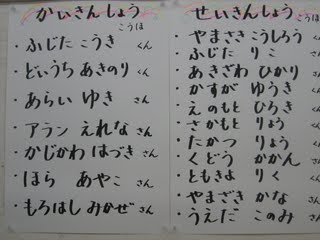 かいきんしょう
こうほ
・ふじた こうき くん
・どいうち あきのり くん
・あらい ゆき さん
・アラン えれな さん
・かじかわ はづき さん
・ほら あやこ さん
・もろはし みかぜ さん
せいきんしょう
こうほ
・やまさき こうしろう くん
・ふじた りこ さん
・あきざわ ひかり さん
・かすが ゆうき くん
・えのもと ひろき くん
・さかもと りょう くん
・たかつ りょう くん
・くどう かかん くん
・ともきよ りく くん
・やまざき かな さん
・うえだ このみ さん